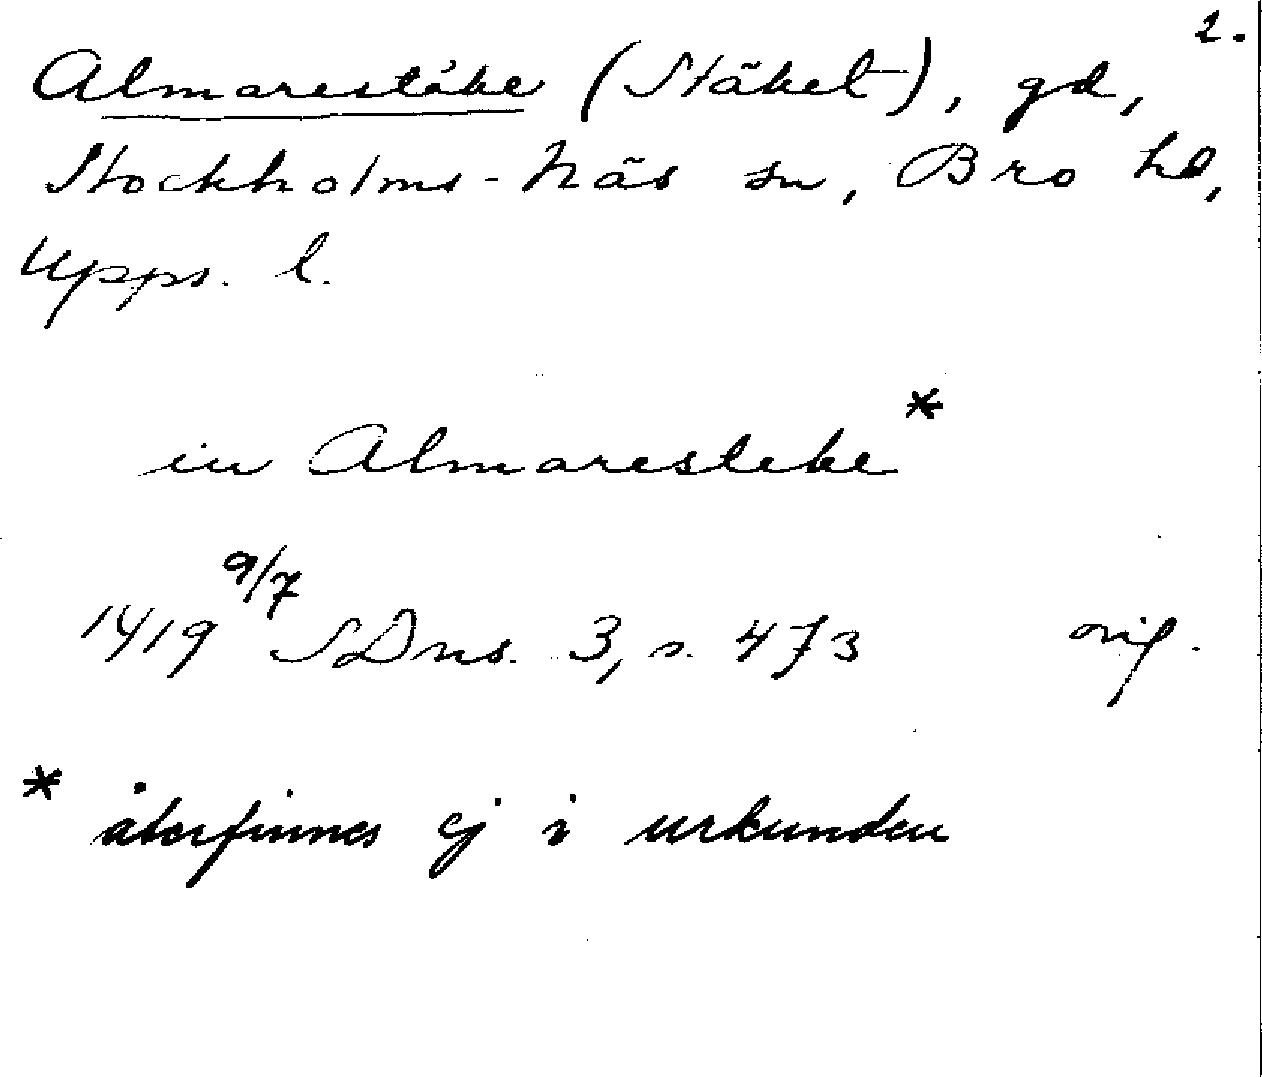 2.
Almarestäke (Stäket), gd,
Stockholms-Näs sn, Bro hd,
Upps. l.
in Almaresteke*
1419 9/7 SDns. 3, s. 473 orig.
* återfinnes ej i urkunden